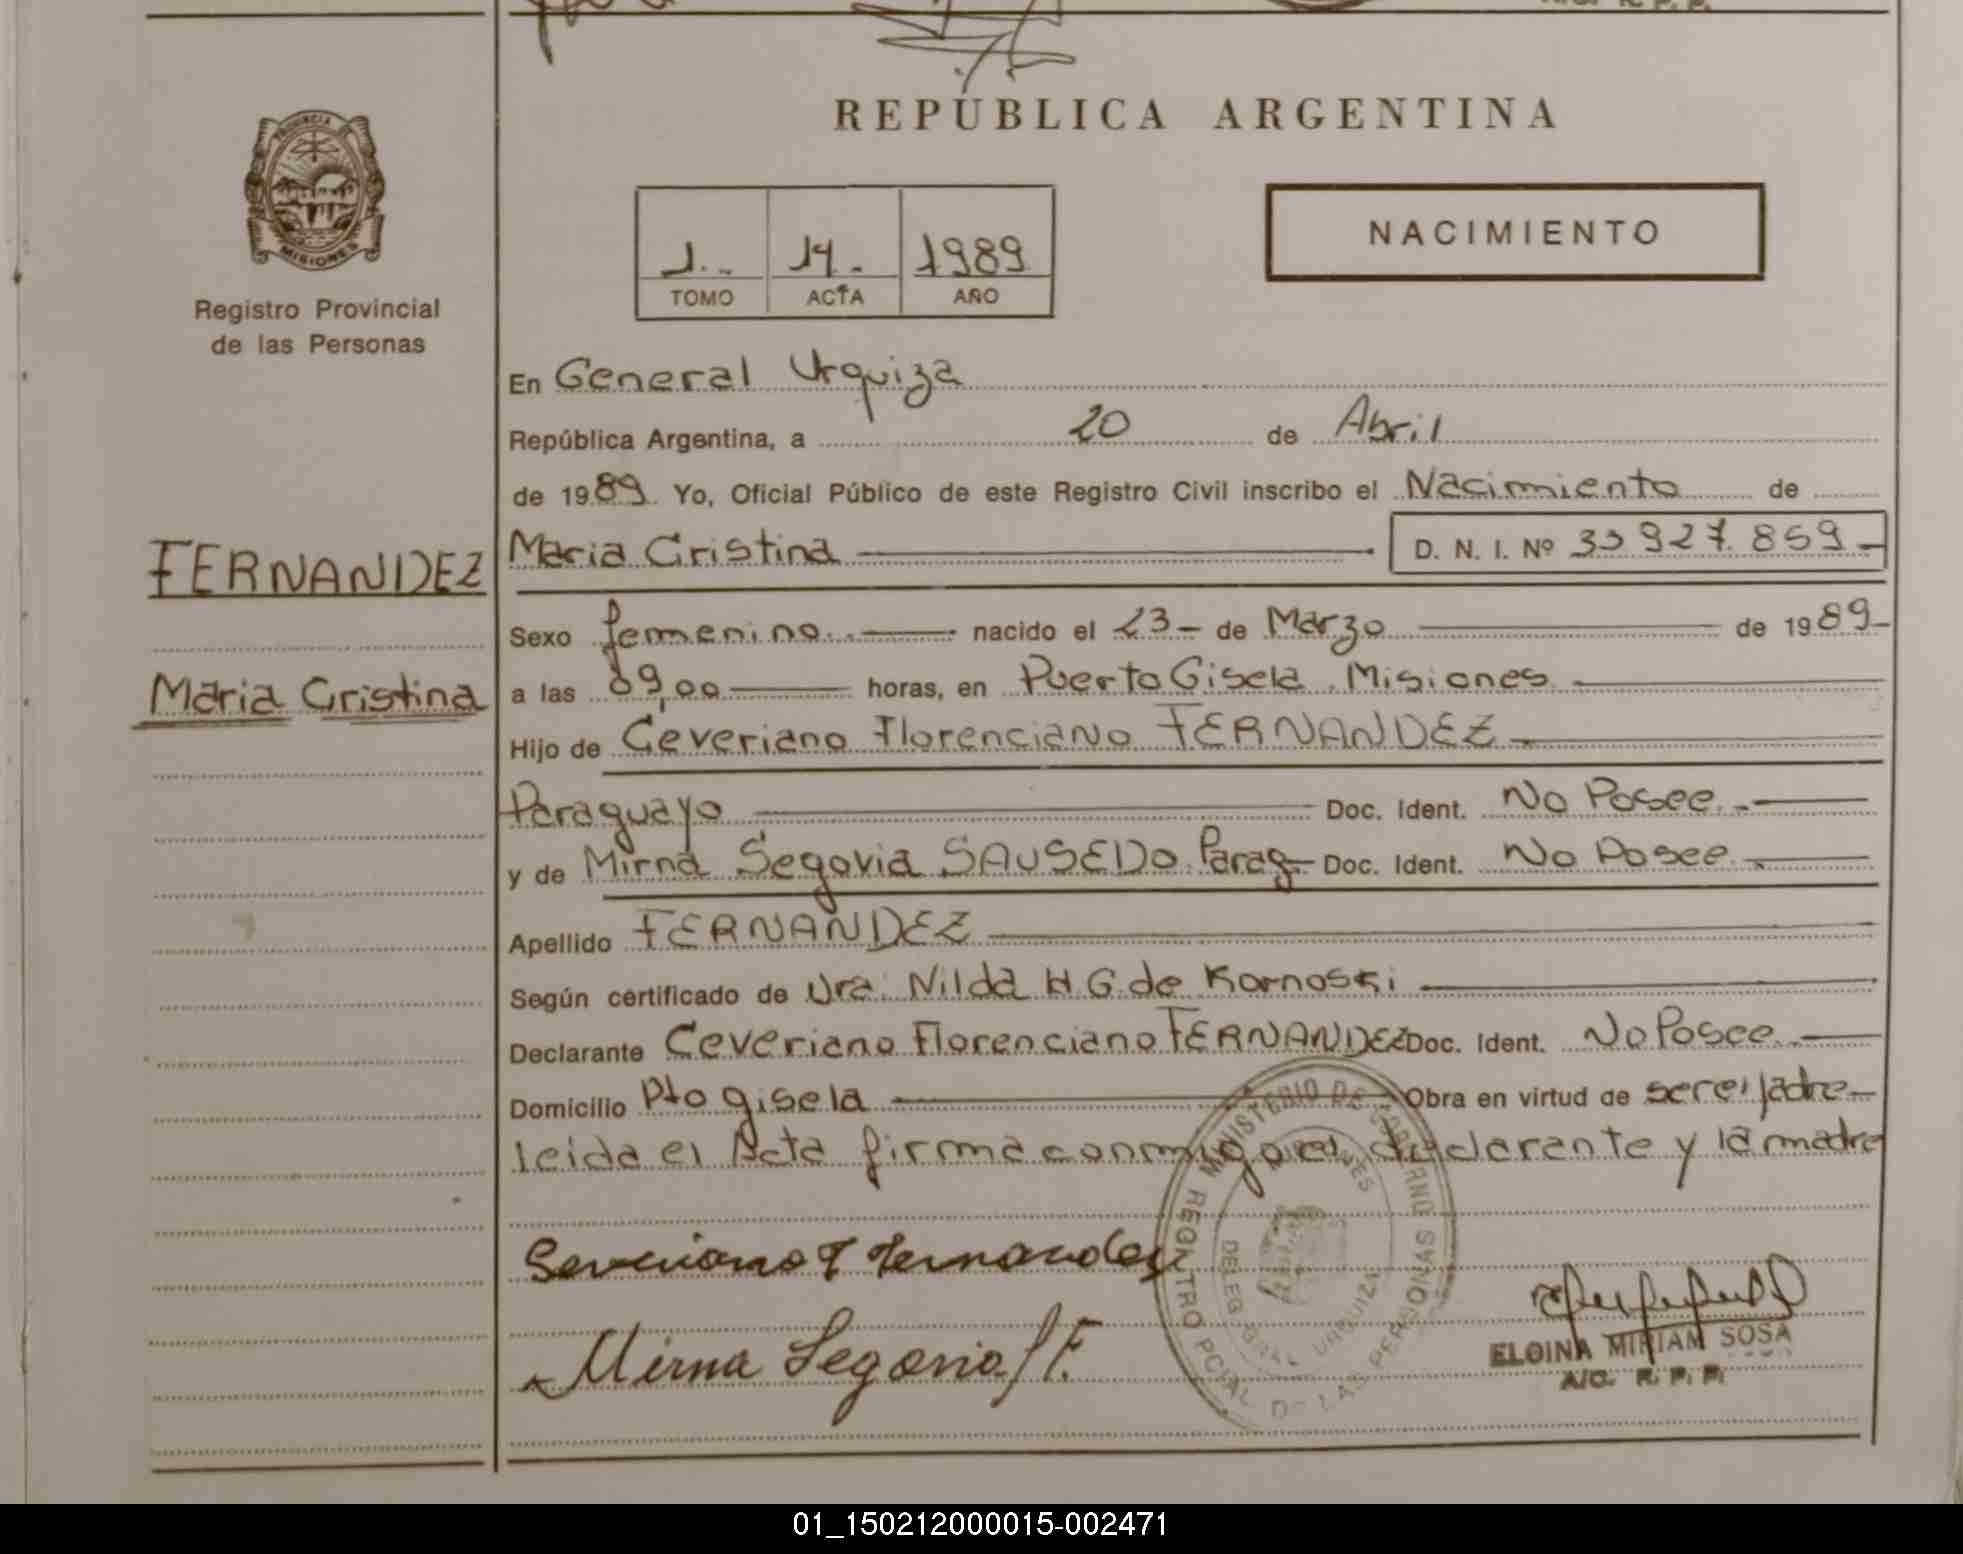 REPÚBLICA ARGENTINA
PROVINCIA DE
MISIONES
Registro Provincial
de las Personas
NACIMIENTO
1.. 14. 1989
TOMO ACTA AÑO
En General Urquiza
República Argentina, a 20 de Abril
de 1989 Yo, Oficial Público de este Registro Civil inscribo el Nacimiento de
FERNANDEZ
Maria Cristina
Maria Cristina D. N. I. Nº 33 927 859
Sexo femenino nacido el 23 de Marzo de 1989
a las 09,00 horas, en Puerto Gisela. Misiones
Hijo de Ceveriano Florenciano FERNANDEZ
Paraguayo Doc. Ident. No Posee
y de Mirna Segovia SAUSEDO Parag Doc. Ident. No Posee
Apellido FERNANDEZ
Según certificado de Dra: Nilda H G de Kornoski
Declarante Ceveriano Florenciano FERNANDEZ Doc. Ident. No Posee
Domicilio Pto gisela Obra en virtud de ser el padre
leida el Acta firma conmigo el declarante y la madre
Severiano F Fernandez
Mirna Segovia / F.
MINISTERIO DE GOBIERNO
MISIONES
REGISTRO PCIAL DE LAS PERSONAS
DELEG GRAL URQUIZA
ELOINA MIRIAM SOSA
A/C. R. P. P.
01_150212000015-002471